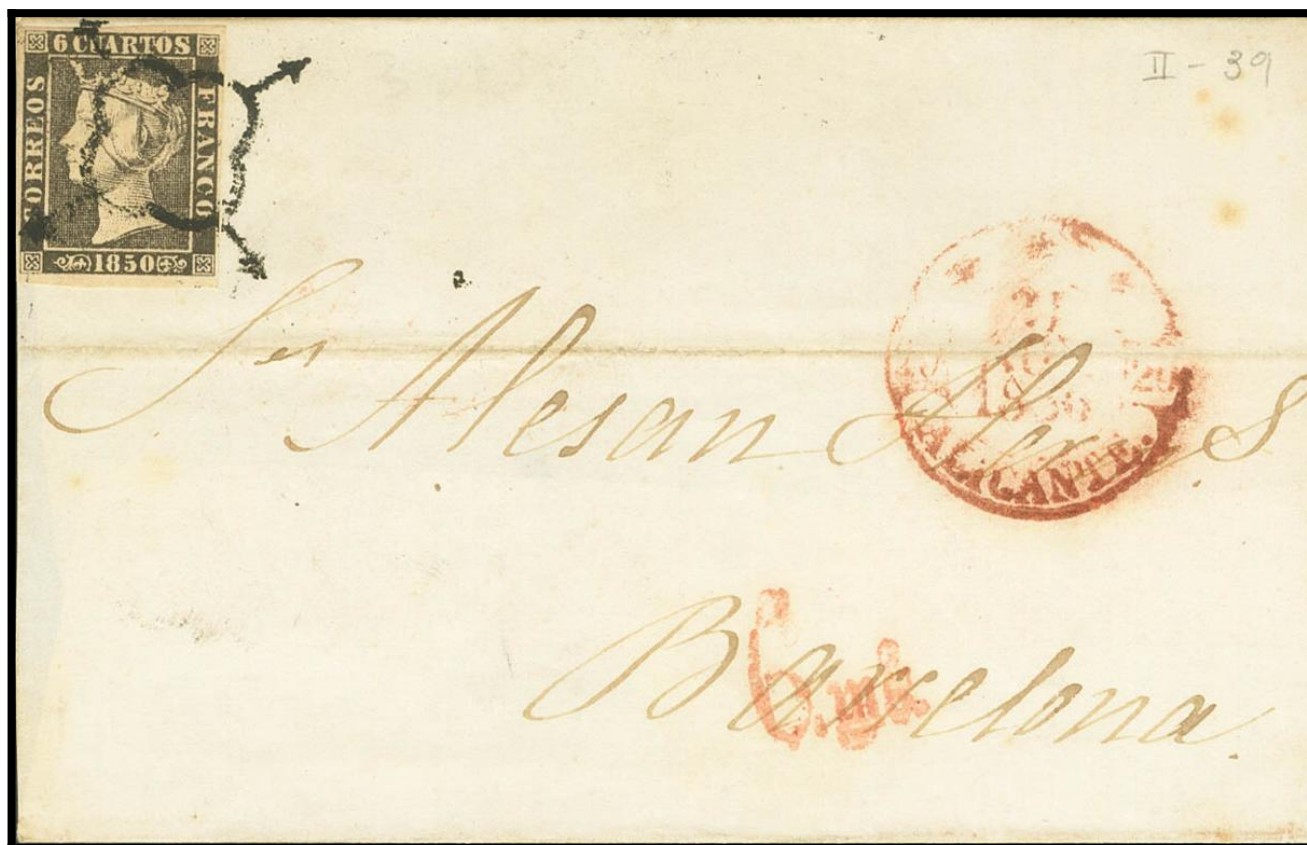 6 CUARTOS
CORREOS
FRANCO
1850
II - 39
Sres Alesan Her. S
ALICANTE.
Barcelona.